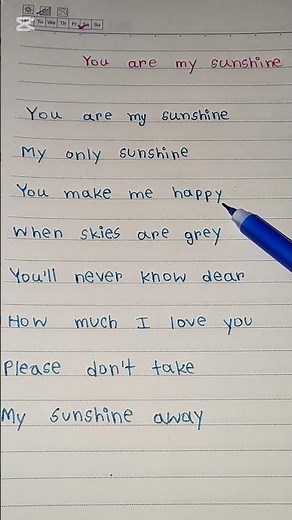 Tu We Th Fr Sa Su
You are my sunshine
You are my sunshine
My only sunshine
You make me happy
When skies are grey
You'll never know dear
How much I love you
Please don't take
My sunshine away